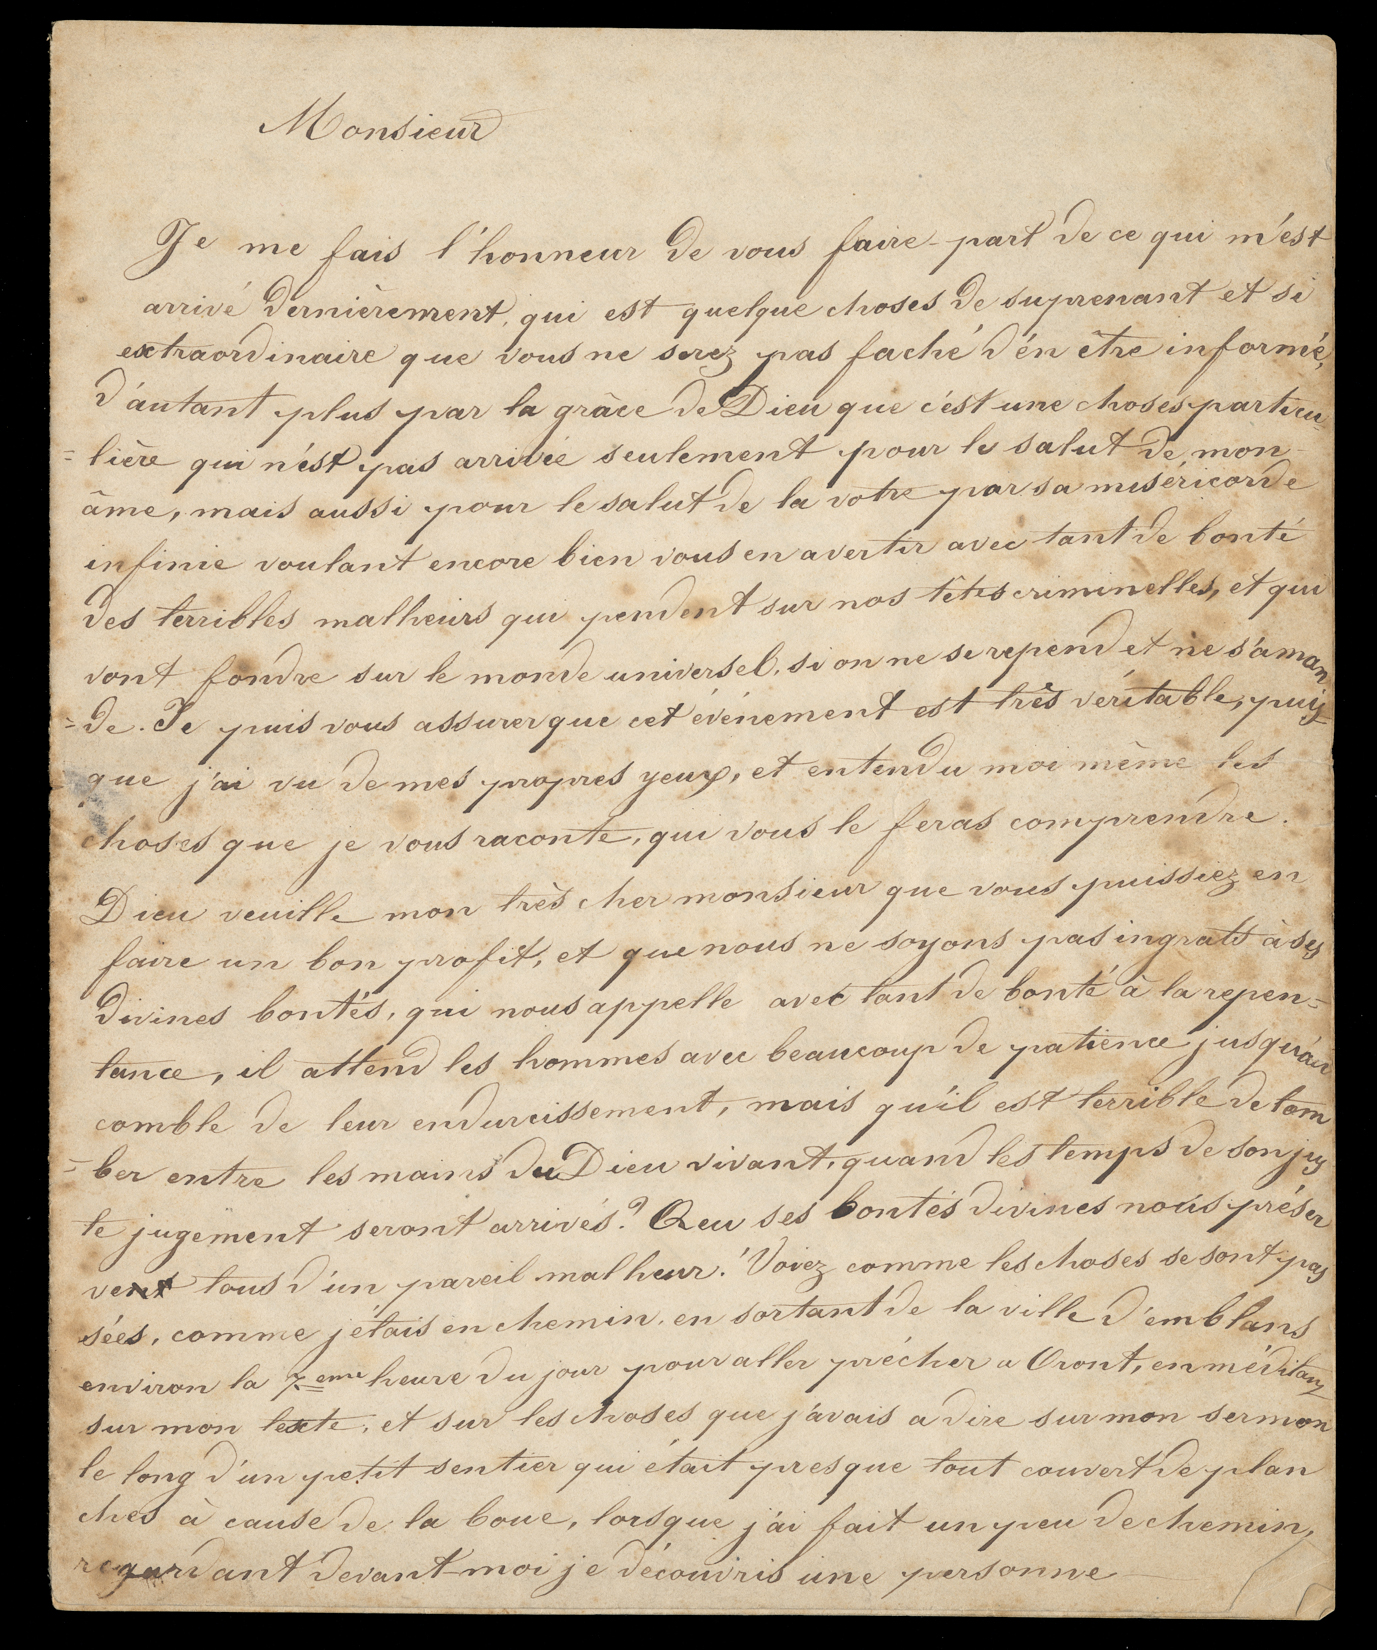 Monsieur
Je me fais l'honneur de vous faire-part de ce qui m'est
arrivé dernièrement, qui est quelque choses de suprenant et si
extraordinaire que vous ne serez pas faché d'én être informé,
d'áutant plus par la grâce de Dieu que c'ést une choses particu
= lière qui n'ést pas arrivée seulement pour le salut de mon
âme, mais aussi pour le salut de la votre par sa miséricorde
infinie voulant encore bien vous en avertir avec tant de bonté
des terribles malheurs qui pendent sur nos têtes criminelles, et qui
vont fondre sur le monde universel, si on ne se repend et ne s'áman
= de. Je puis vous assurer que cet événement est très véritable, puis
que j'ai vu de mes propres yeux, et entendu moi même les
choses que je vous raconte, qui vous le feras comprendre.
Dieu veuille mon très cher monsieur que vous puissiez en
faire un bon profit, et que nous ne soyons pas ingrats à ses
divines bontés, qui nous appelle avec tant de bonté à la repen=
tance, il attend les hommes avec beaucoup de patience jusqu'au
comble de leur endurcissement, mais qu'il est terrible de tom
= ber entre les mains du Dieu vivant, quand les temps de son jus
te jugement seront arrivés? Qeu ses bontés divines nous préser
vent tous d'un pareil malheur! Voiez comme les choses se sont pas
sées, comme j'étais en chemin, en sortant de la ville d'émblans
environ la 7eme heure du jour pour aller précher a Oront, en méditant
sur mon texte, et sur les choses que j'avais a dire sur mon sermon
le long d'un petit sentier qui était presque tout couvert de plan
ches à cause de la boue, lorsque j'ai fait un peu de chemin,
regardant devant-moi je découvris une personne